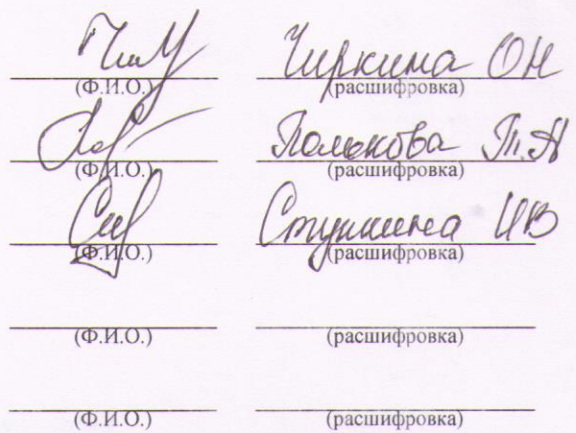 Чиркина ОН
(Ф.И.О.) (расшифровка)
Т.А
(Ф.И.О.) (расшифровка)
ИВ
(Ф.И.О.) (расшифровка)
(Ф.И.О.) (расшифровка)
(Ф.И.О.) (расшифровка)